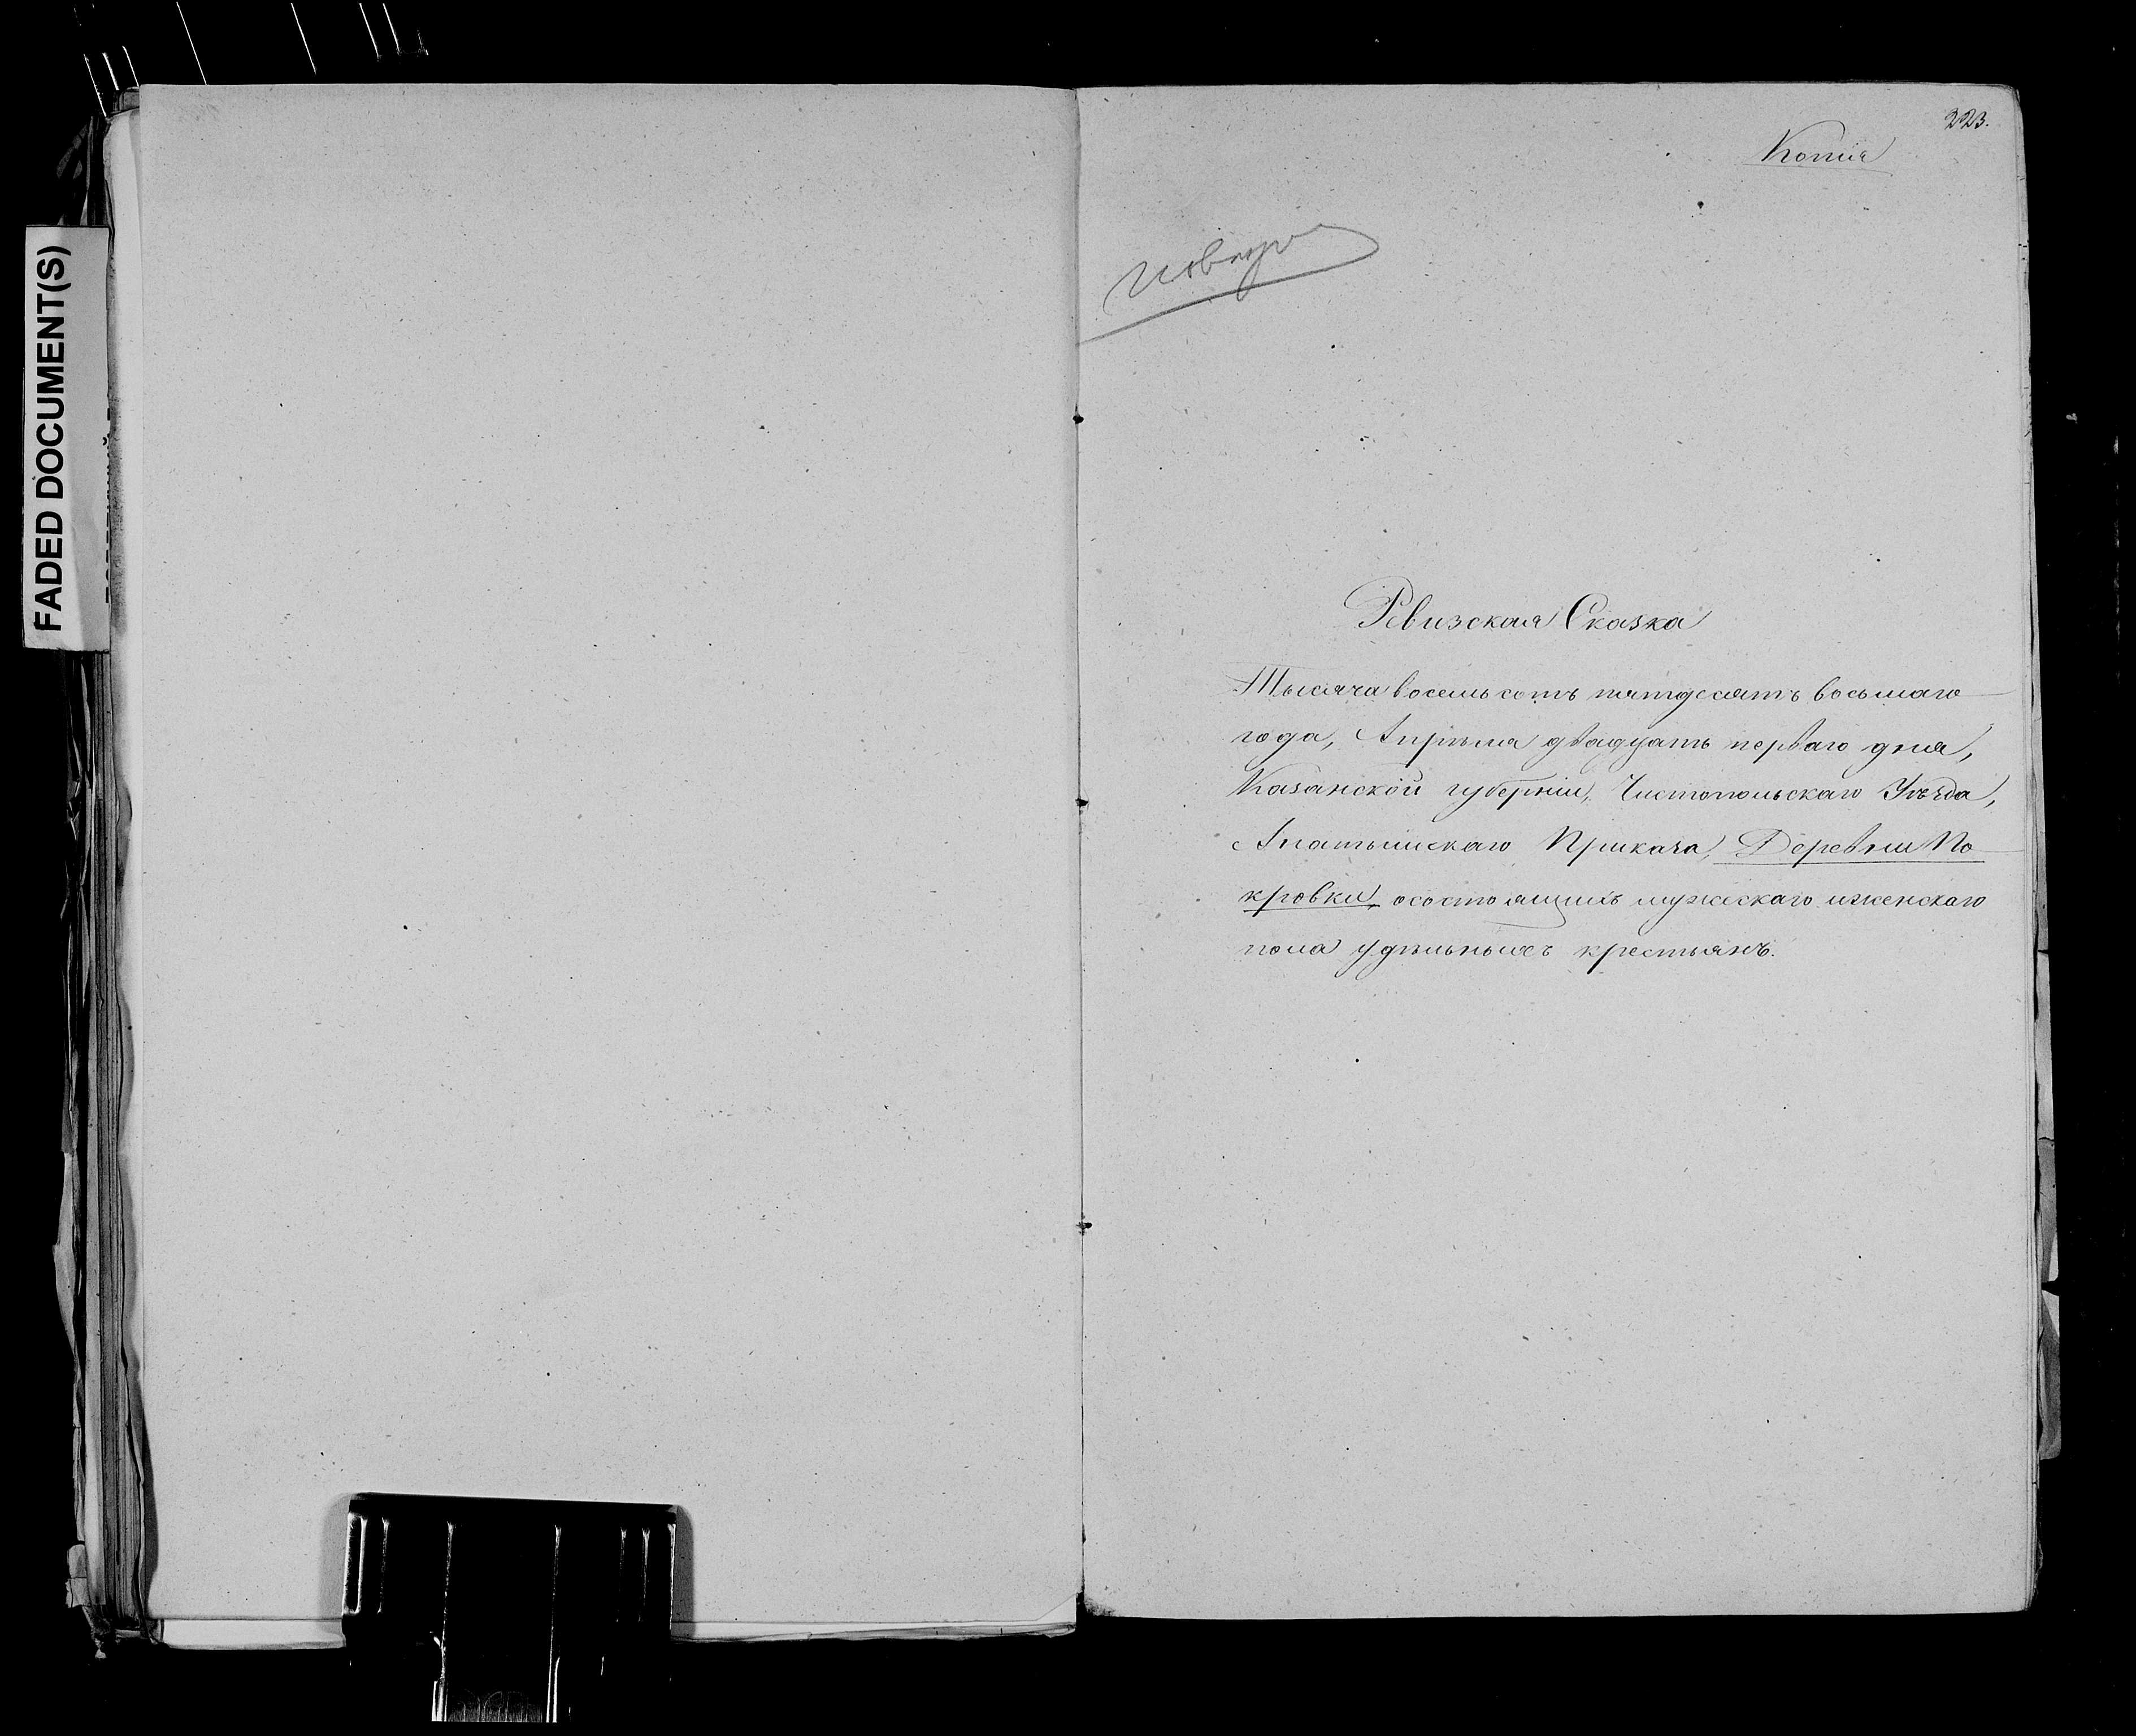 FADED DOCUMENT(S)
223.
Копія
Ревизская Сказка
Тысяча восемь сотъ пятдесятъ восьмаго
года, Апрѣля двадцать перваго дня,
Казанской губерніи, Чистопольскаго Уѣзда,
Приказа, Деревни По
кровки, о состоящихъ мужескаго и женскаго
пола удѣльныхъ крестьянъ.